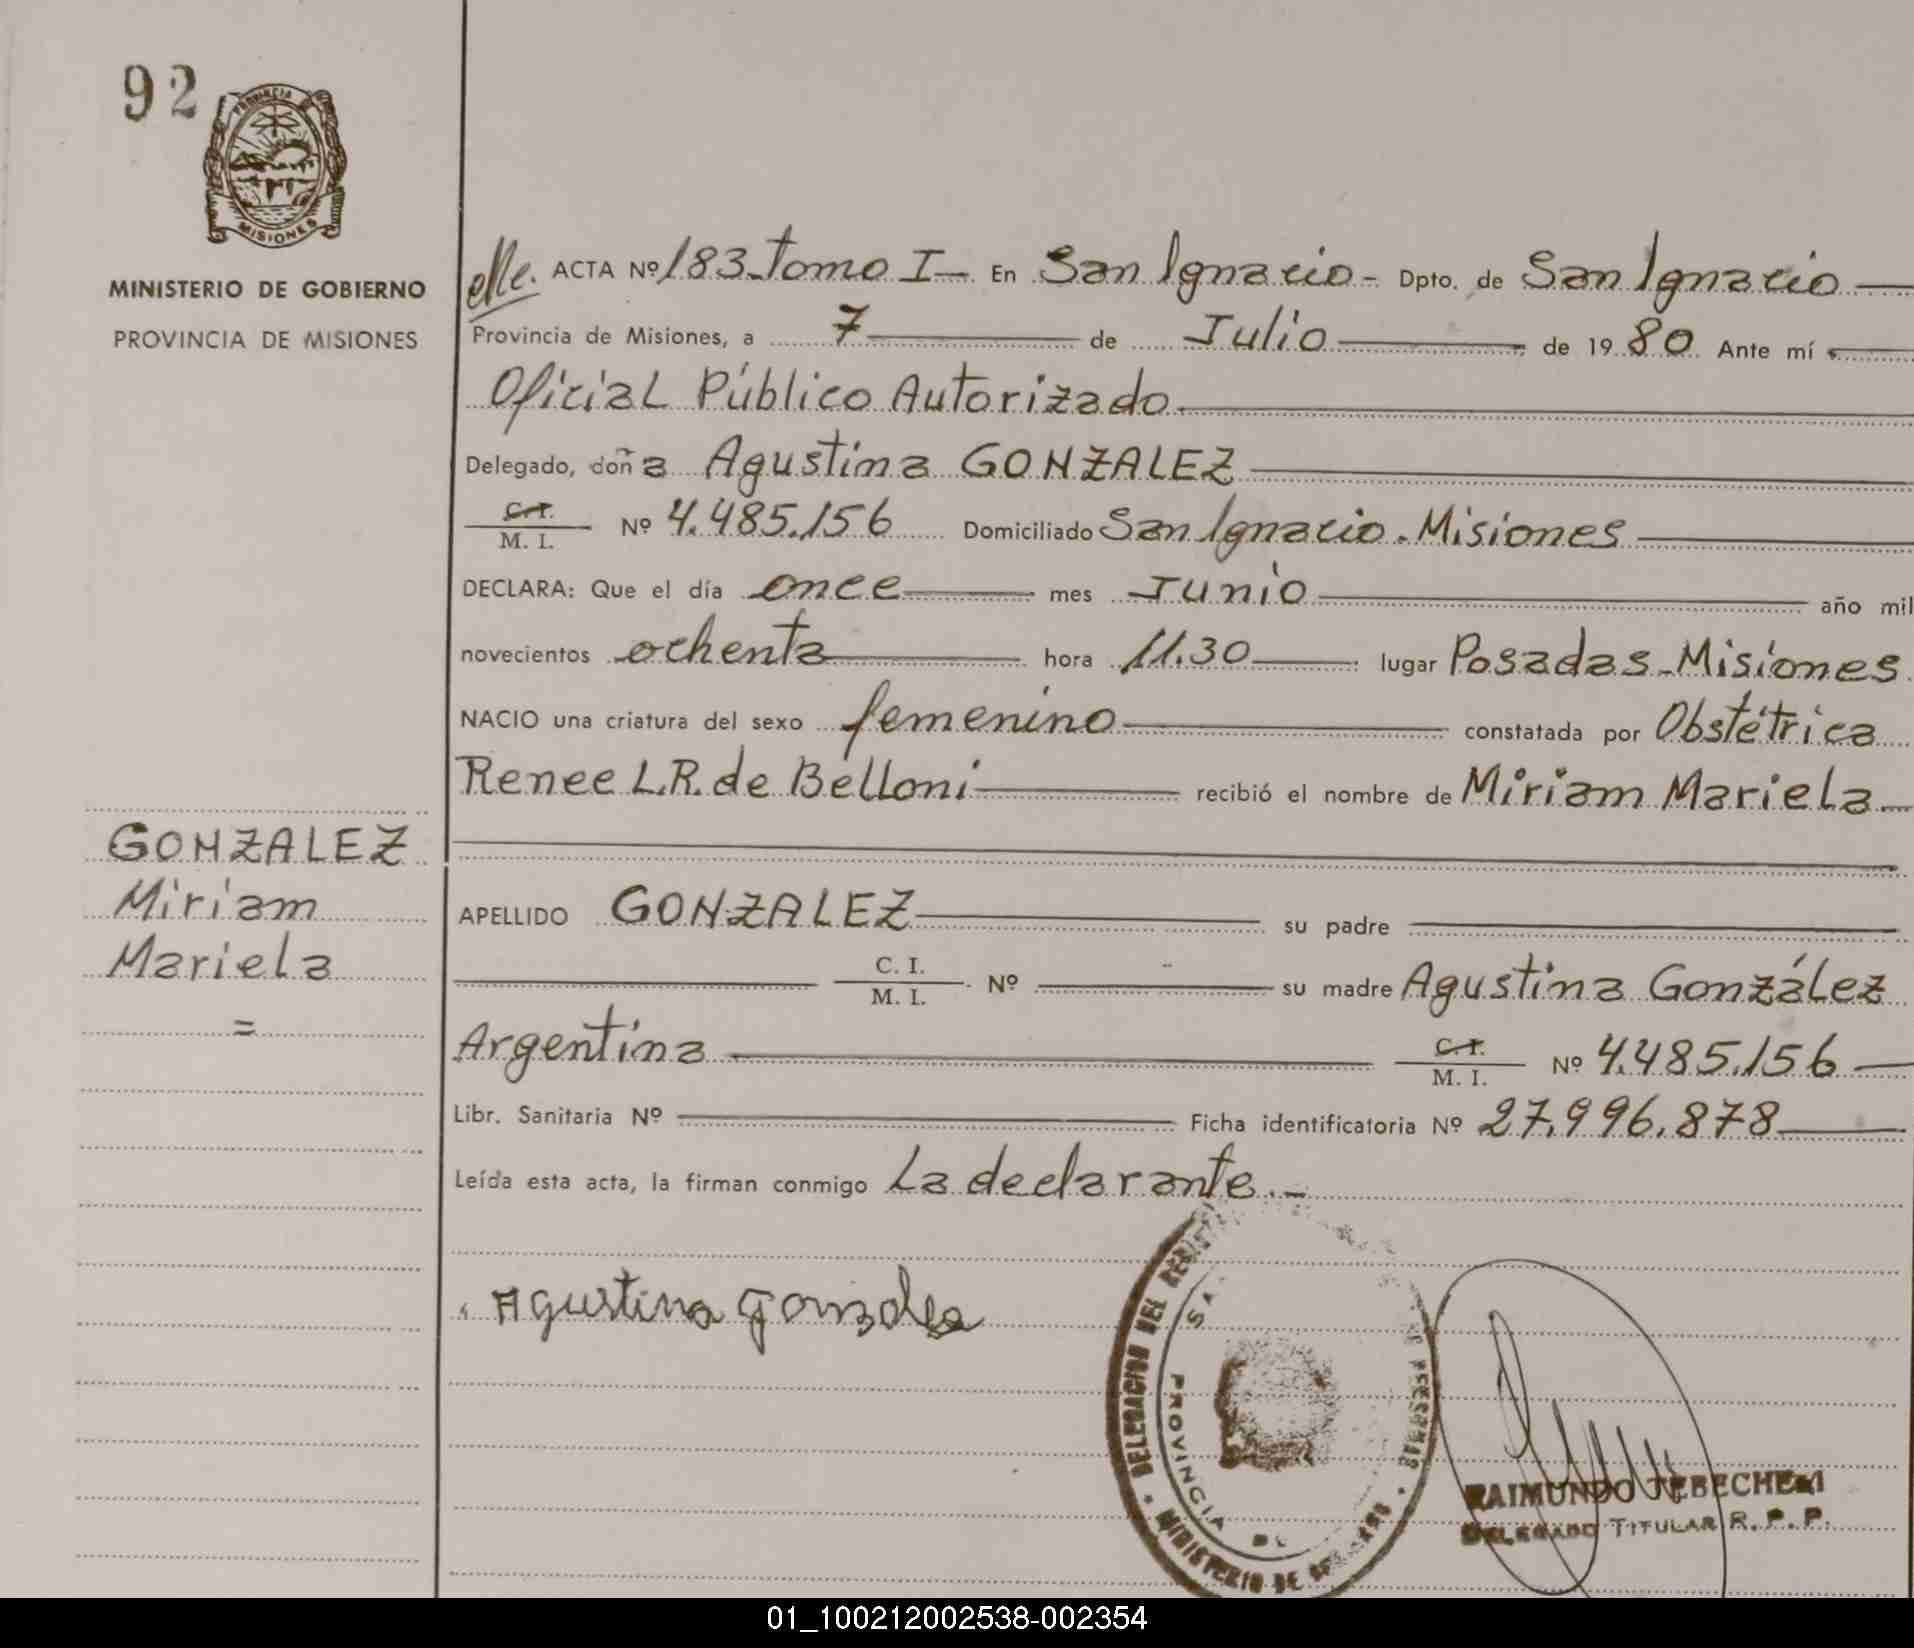 92
PROVINCIA DE
MISIONES
MINISTERIO DE GOBIERNO
PROVINCIA DE MISIONES
ACTA Nº 183 Tomo I En San Ignacio - Dpto. de San Ignacio
Provincia de Misiones, a 7 de Julio de 1980 Ante mí
Oficial Público Autorizado
Delegado, doña Agustina GONZALEZ
C.I.
M. I. Nº 4.485.156 Domiciliado San Ignacio. Misiones
DECLARA: Que el día once mes Junio año mil
novecientos ochenta hora 11.30 lugar Posadas - Misiones
NACIO una criatura del sexo femenino constatada por Obstétrica
Renee L.R. de Belloni recibió el nombre de Miriam Mariela
GONZALEZ
Miriam
Mariela
=
APELLIDO GONZALEZ su padre
C. I.
M. I. Nº su madre Agustina González
Argentina C.I.
M. I. Nº 4.485.156
Libr. Sanitaria Nº Ficha identificatoria Nº 27.996.878
Leída esta acta, la firman conmigo La declarante.-
Agustina Gonzalez
DELEGACION DEL
PROVINCIA DE
MINISTERIO DE
RAIMUNDO TEBECHERI
DELEGADO TITULAR R. P. P.
01_100212002538-002354